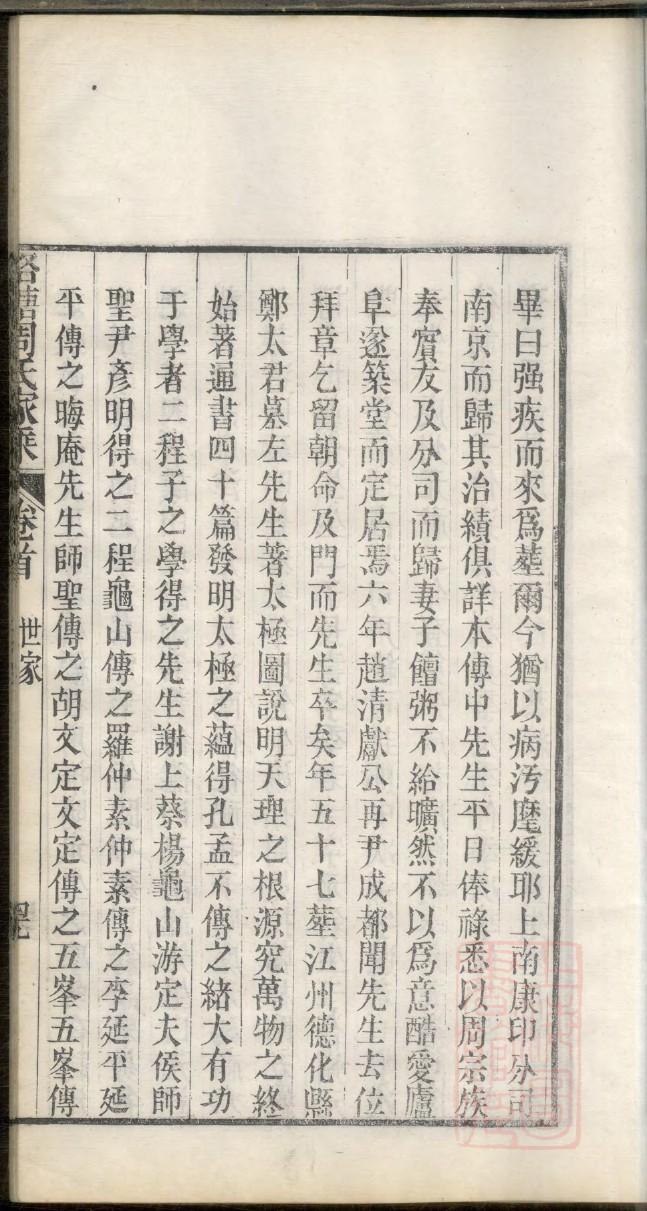 畢曰强疾而來爲塟爾今猶以病汚麾緩耶上南康印分司
南京而歸其治績俱詳本傳中先生平日俸祿悉以周宗族
奉賓友及分司而歸妻子饘粥不給曠然不以爲意酷愛廬
阜遂築堂而定居焉六年趙清獻公再尹成都聞先生去位
拜章乞留朝命及門而先生卒矣年五十七塟江州德化縣
鄭太君墓左先生著太極圖說明天理之根源究萬物之終
始著通書四十篇發明太極之蘊得孔孟不傳之緒大有功
于學者二程子之學得之先生謝上蔡楊龜山游定夫侯師
聖尹彥明得之二程龜山傳之羅仲素仲素傳之李延平延
平傳之晦庵先生師聖傳之胡文定文定傳之五峯五峯傳
周氏家乘 卷首 世家